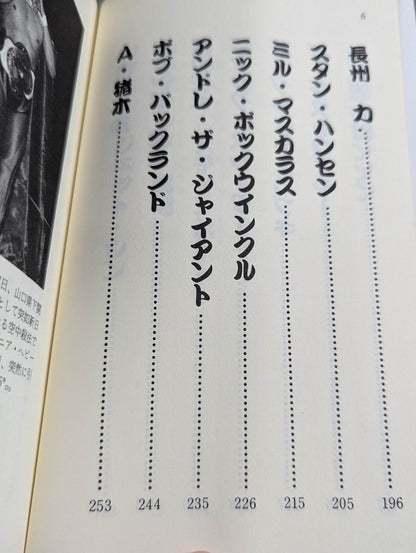 6
長州 力 196
スタン・ハンセン 205
ミル・マスカラス 215
ニック・ボックウインクル 226
アンドレ・ザ・ジャイアント 235
ボブ・バックランド 244
A・猪木 253
日、山口県下関
として突如新日
る空中殺法で
ニア・ヘビー
、突然に引